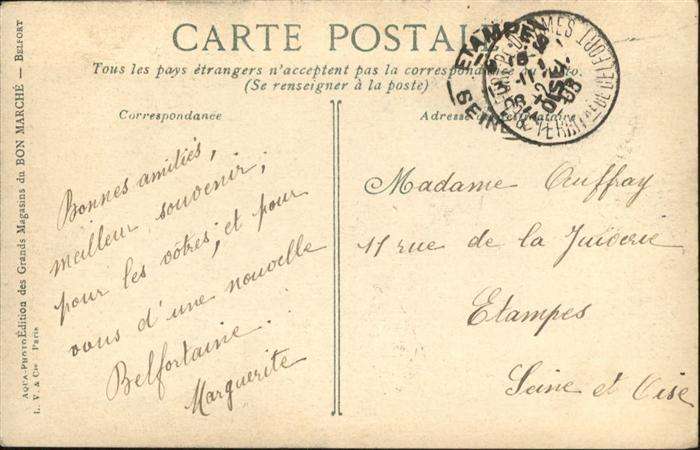 CARTE POSTALE
Tous les pays étrangers n'acceptent pas la correspondance
(Se renseigner à la poste)
Correspondance
Bonnes amitiés,
meilleur souvenir,
pour les vôtres, et pour
vous d'une nouvelle
Belfortaine.
Marguerite
Madame Auffray
11 rue de la Juiverie
Etampes
Seine et Oise
AQUA-PHOTO Édition des Grands Magasins du BON MARCHÉ — BELFORT
L. V. & Cie Paris
ETAMPES
SEINE
OISE